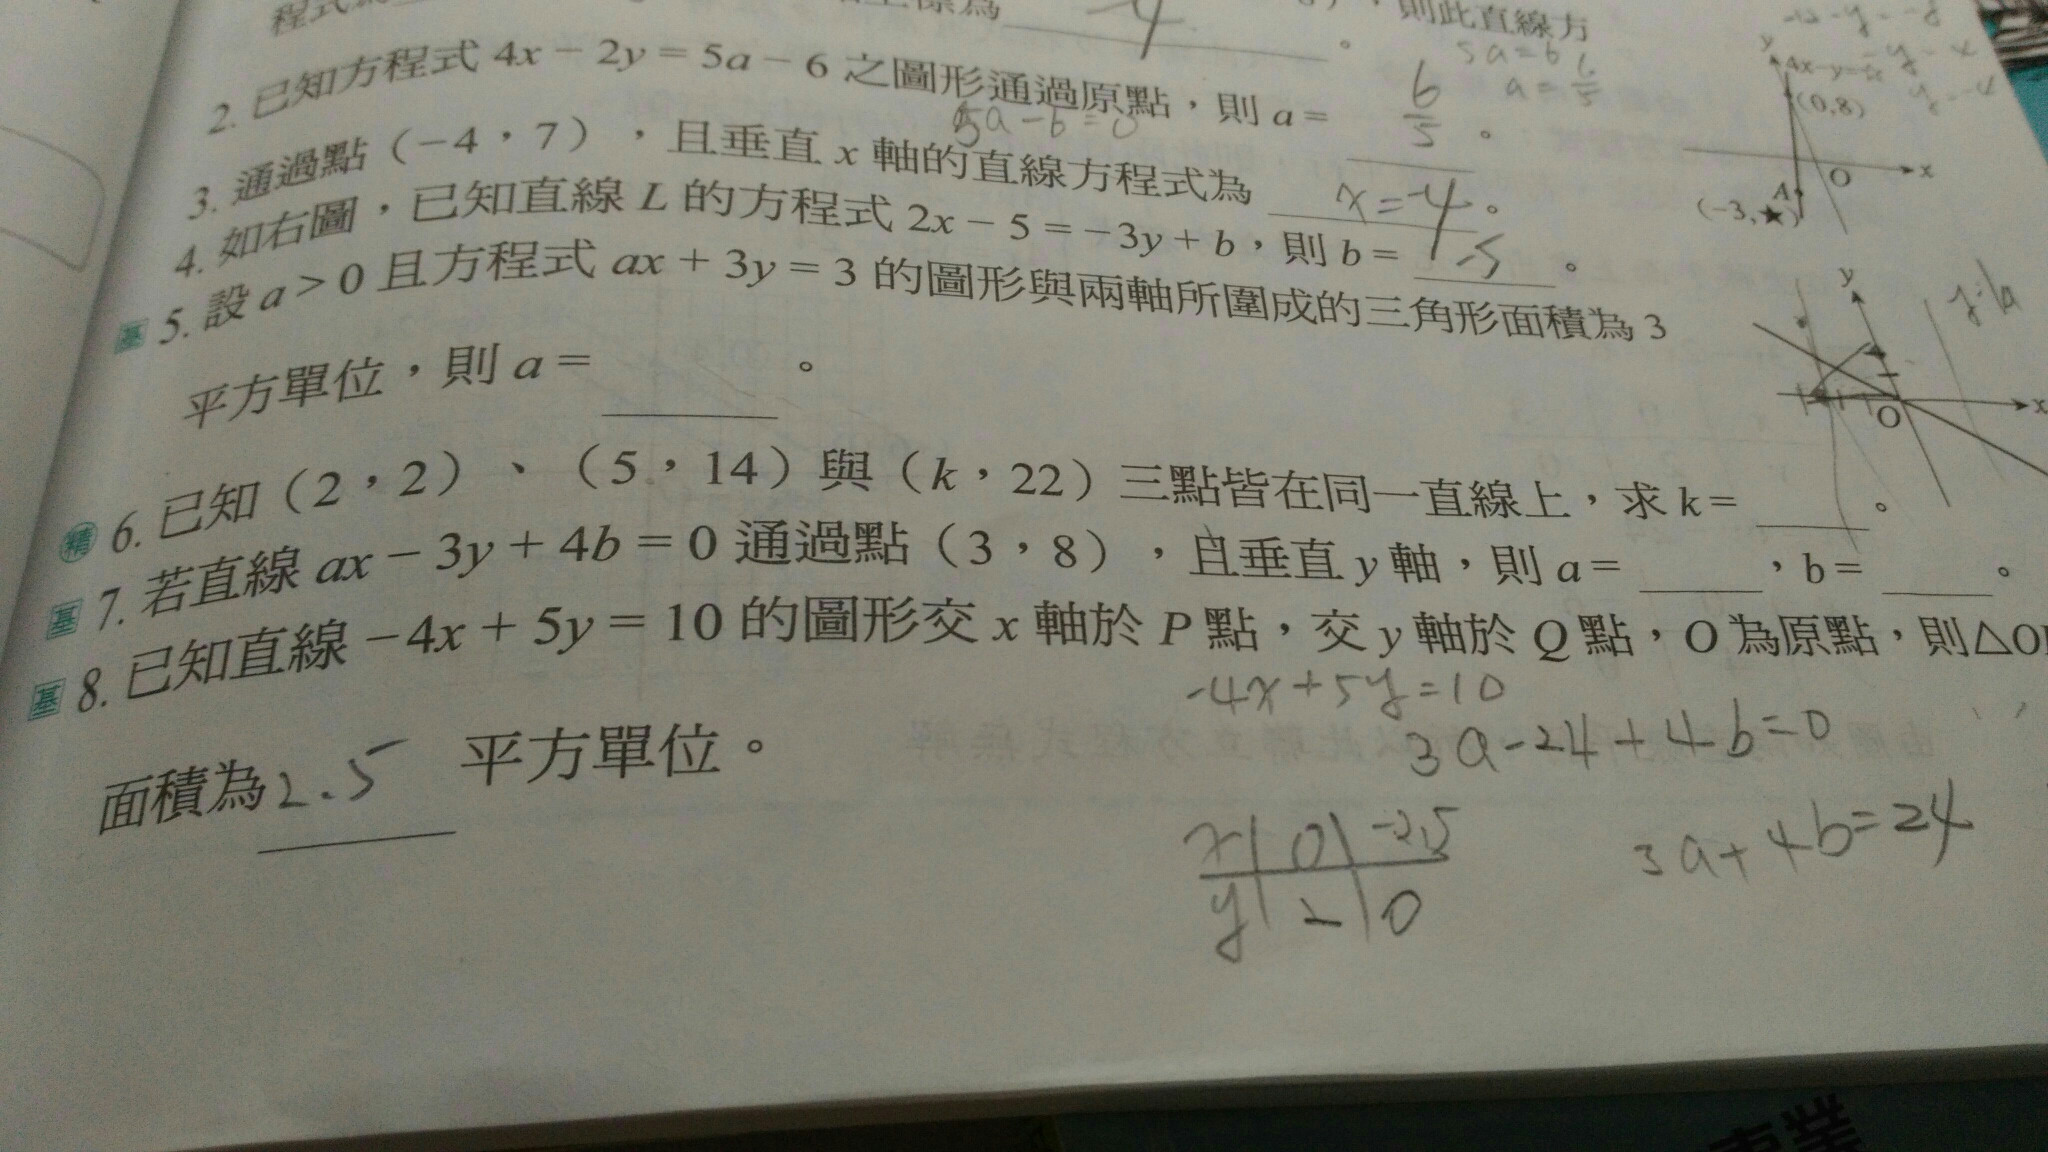 程式為
標為 4 。
，則此直線方
2. 已知方程式 4x－2y＝5a－6 之圖形通過原點，則 a＝ 6/5 。
5a-6=0
5a=6
a=6/5
3. 通過點（－4，7），且垂直 x 軸的直線方程式為 x=-4 。
4. 如右圖，已知直線 L 的方程式 2x－5＝－3y＋b，則 b＝ -5 。
基 5. 設 a＞0 且方程式 ax＋3y＝3 的圖形與兩軸所圍成的三角形面積為 3
平方單位，則 a＝ 。
精 6. 已知（2，2）、（5，14）與（k，22）三點皆在同一直線上，求 k＝ 。
基 7. 若直線 ax－3y＋4b＝0 通過點（3，8），且垂直 y 軸，則 a＝ ，b＝ 。
基 8. 已知直線－4x＋5y＝10 的圖形交 x 軸於 P 點，交 y 軸於 Q 點，O 為原點，則△O
面積為 2.5 平方單位。
-4x+5y=10
3a-24+4b=0
3a+4b=24
x 0 -2.5
y 2 0
y
(0,8)
O
x
A
(-3,★)
y
O
x
專業